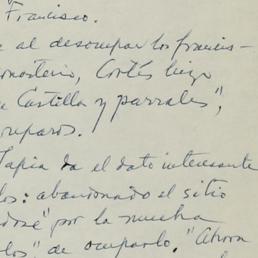 Francisco.
al desocupar los francis-
monasterio, Cortés hizo
Castilla y parrales",
reparos.
Tapia da el dato interesante
los: abandonado el sitio
dose" por la mucha
los" de ocuparlo. "Ahora